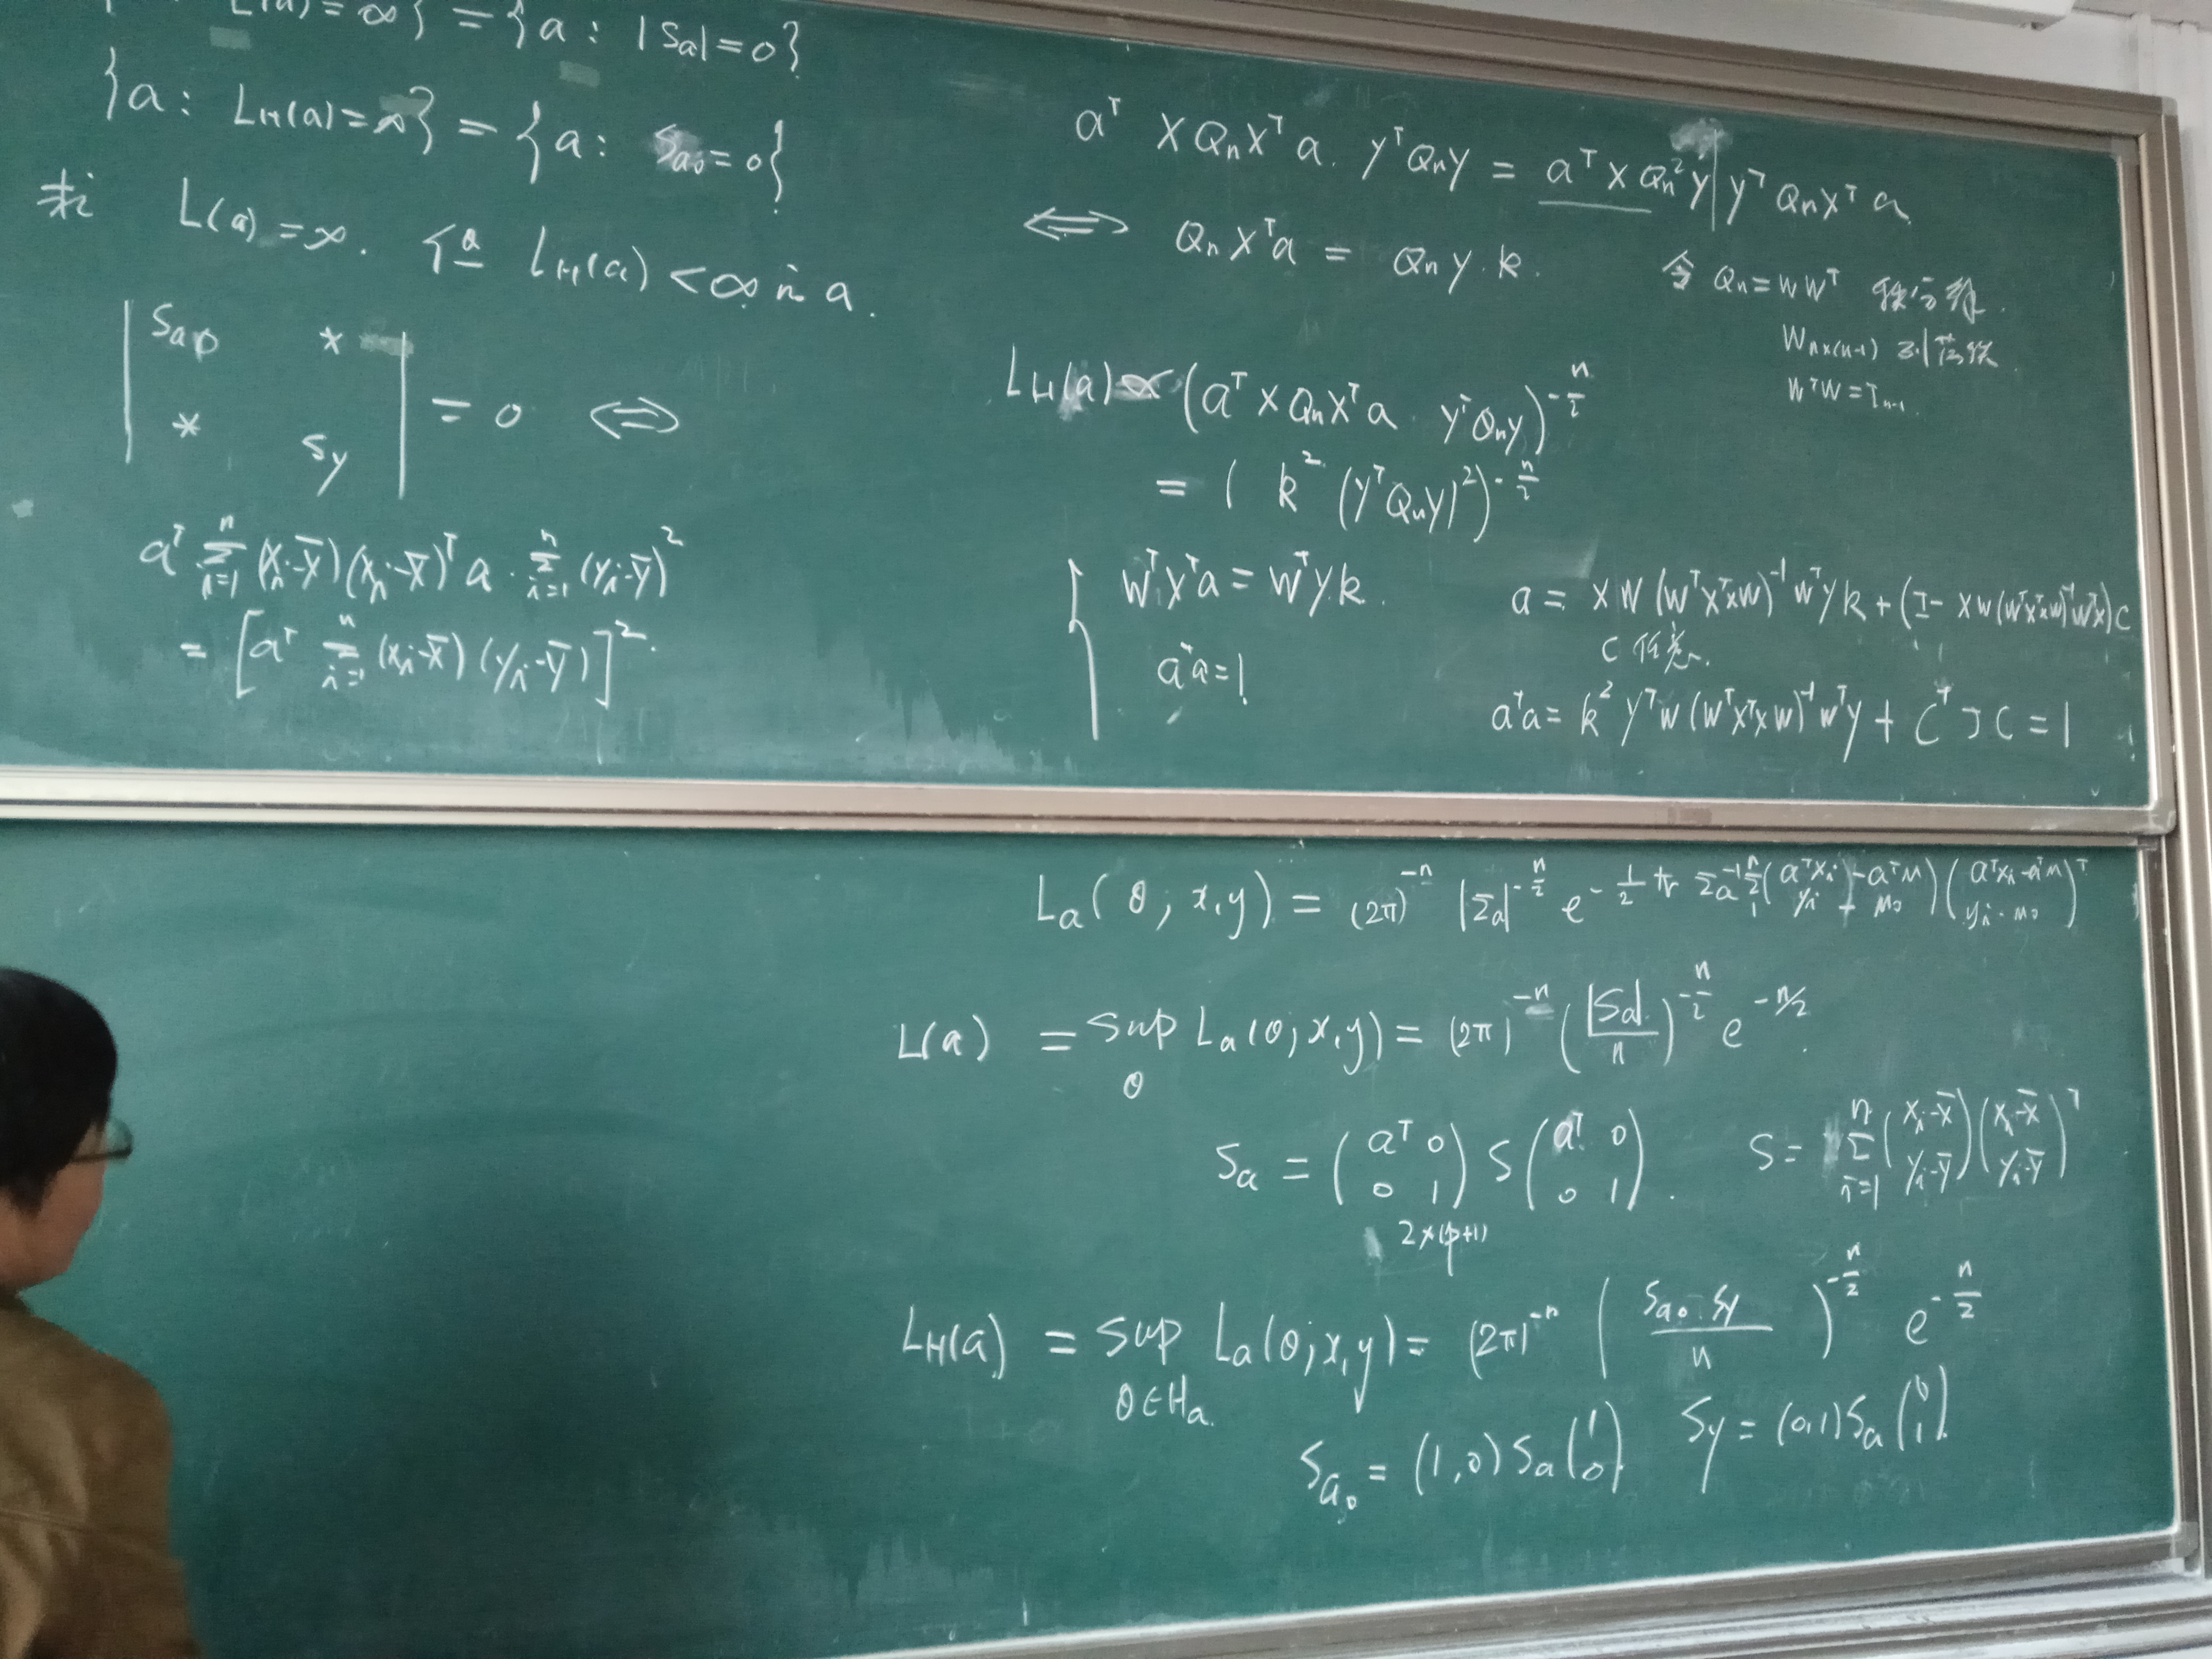 L(a) = ∞} = {a : |Sa| = 0}
{a : L_H(a) = ∞} = {a : S_{a0} = 0}
求 L(a) = ∞. 但 L_H(a) < ∞ 的 a.
| S_{a0} * |
| * S_y | = 0 ⟺
a^T Σ_{i=1}^n (x_i - x̄)(x_i - x̄)^T a · Σ_{i=1}^n (y_i - ȳ)^2
= [a^T Σ_{i=1}^n (x_i - x̄)(y_i - ȳ)]^2.
a^T X Q_n X^T a. y^T Q_n y = a^T X Q_n^2 y | y^T Q_n X^T a.
⟺ Q_n X^T a = Q_n y · k.
令 Q_n = W W^T 秩分解.
W_{n×(n-1)} 列满秩.
W^T W = I_{n-1}.
L_H(a) ∝ (a^T X Q_n X^T a y^T Q_n y)^{-n/2}
= ( k^2 (y^T Q_n y)^2 )^{-n/2}
{ W^T X^T a = W^T y k.
a^T a = 1
a = XW (W^T X^T XW)^{-1} W^T y k + (I - XW (W^T X^T XW)^{-1} W^T X^T) C
C 任意.
a^T a = k^2 y^T W (W^T X^T X W)^{-1} W^T y + C^T J C = 1
L_a(θ; x, y) = (2π)^{-n} |Σ_a|^{-n/2} e^{-1/2 tr Σ_a^{-1} Σ_1^n (a^T x_i - a^T M; y_i - M_0)(a^T x_i - a^T M; y_i - M_0)^T}
L(a) = sup_θ L_a(θ; x, y) = (2π)^{-n} (|Sa| / n)^{-n/2} e^{-n/2}.
S_a = (a^T 0; 0 1) S (a^T 0; 0 1). S = Σ_{i=1}^n (x_i - x̄; y_i - ȳ)(x_i - x̄; y_i - ȳ)^T
2×(p+1)
L_H(a) = sup_{θ∈H_a.} L_a(θ; x, y) = (2π)^{-n} (S_{a0} · S_y / n)^{-n/2} e^{-n/2}
S_{a0} = (1, 0) S_a (1; 0) S_y = (0, 1) S_a (0; 1).